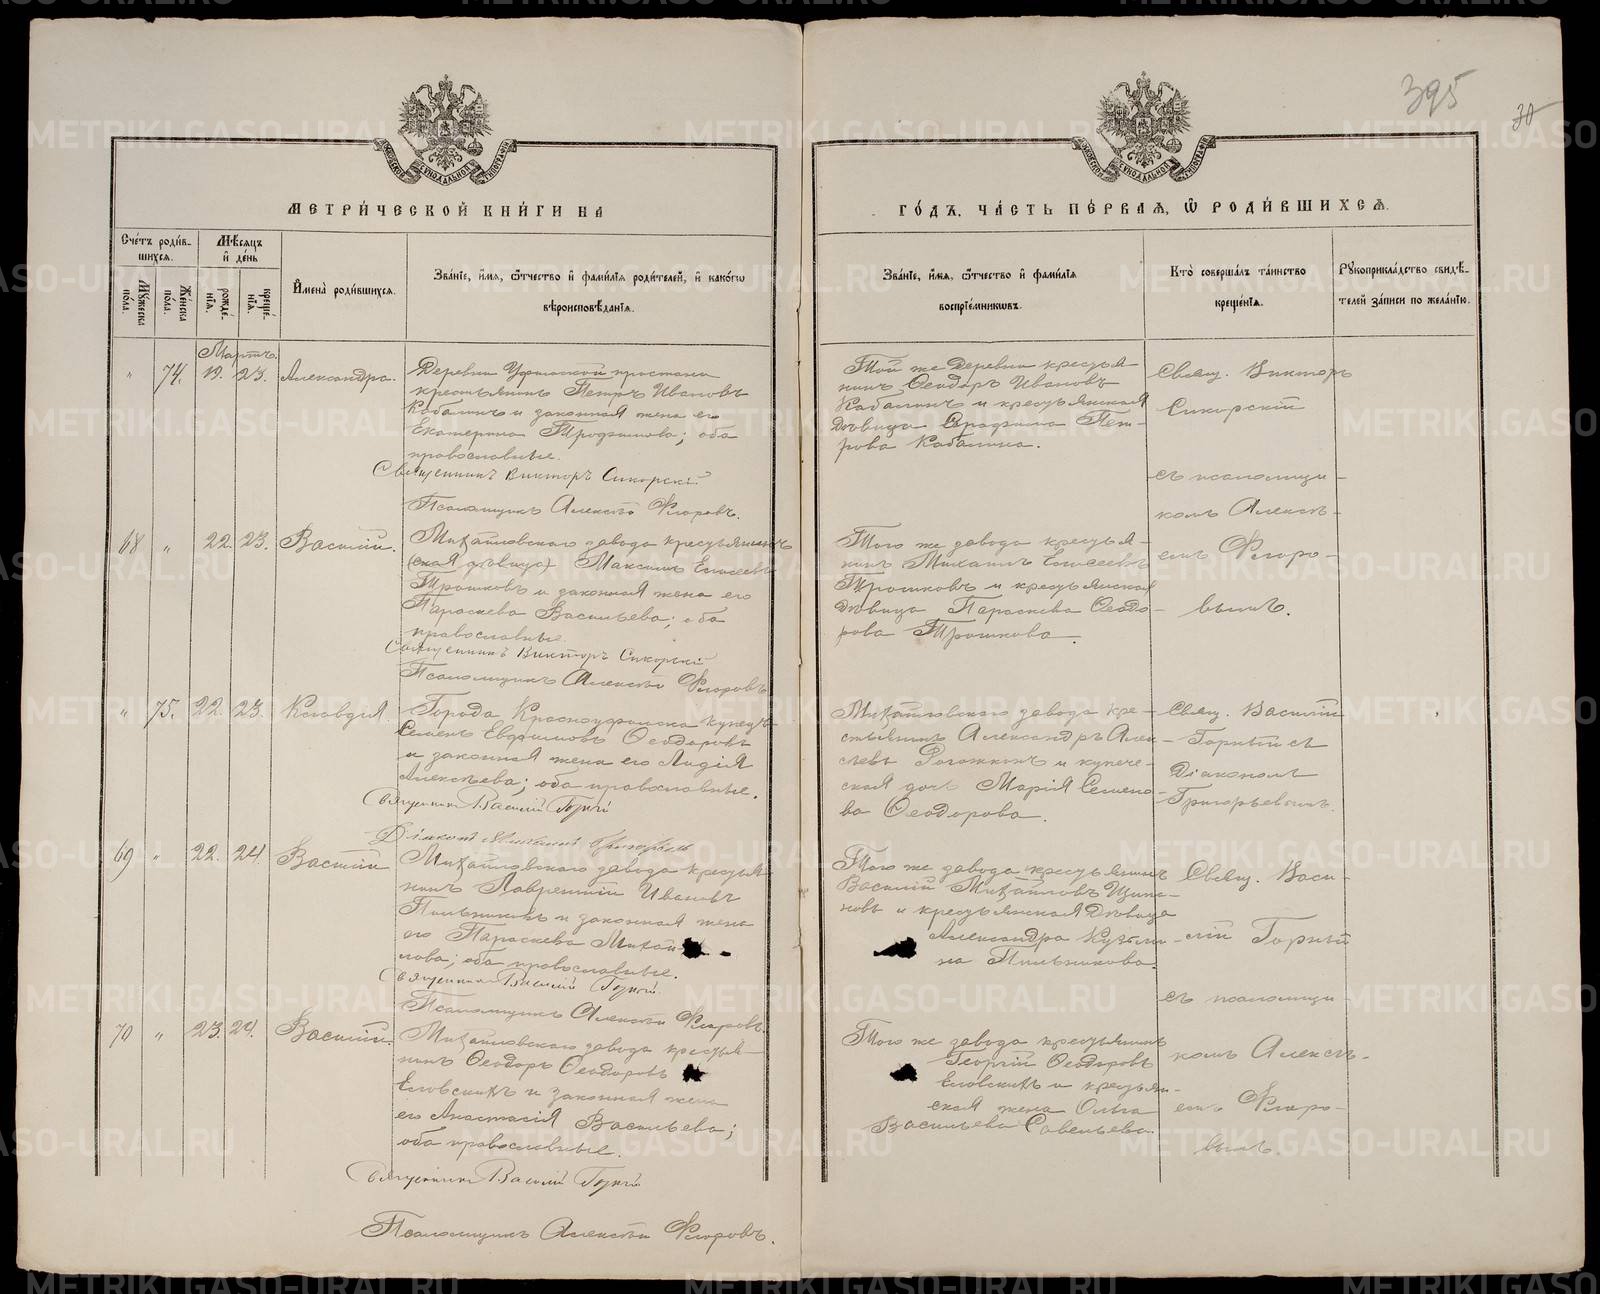 395
30
МЕТРИ́ЧЕСКОЙ КНИ́ГИ НА
ГО́ДЪ, ЧА́СТЬ ПЕ́РВАѦ, Ѡ РОДИ́ВШИХСѦ.
Сче́тъ роди́в-
шихсѧ.
Мѣ́сѧцъ
и҆ де́нь
Мꙋ́жеска
по́ла.
Же́нска
по́ла.
рожде́-
нїѧ.
креще́-
нїѧ.
И҆мена̀ роди́вшихсѧ.
Зва́нїе, и҆́мѧ, ѻ҆́тчество и҆ фами́лїѧ роди́телей, и҆ како́гѡ
вѣроисповѣ́данїѧ.
Зва́нїе, и҆́мѧ, ѻ҆́тчество и҆ фами́лїѧ
воспрїе́мникѡвъ.
Кто̀ соверша́лъ та́инство
креще́нїѧ.
Рꙋкоприкла́дство свидѣ́-
телей за́писи по жела́нїю.
Мартъ.
" 74. 19. 23. Александра.
Деревни Уфимской
крестьянинъ Петръ Ивановъ
Кабалинъ и законная жена его
Екатерина Трофимова; оба
православные.
Священникъ Викторъ Сикорскій
Псаломщикъ Алексѣй Флоровъ.
Той же деревни кресть-
янинъ Ѳеодоръ Ивановъ
Кабалинъ и крестьянская
дѣвица Серафима Пет-
рова Кабалина.
Свящ. Викторъ
Сикорскій
съ псаломщи-
комъ Алексѣ-
емъ Флоро-
вымъ.
68 " 22. 23. Василій.
Михайловскаго завода крестьянинъ
(ская дѣвица) Максимъ Елисеевъ
Трошковъ и законная жена его
Параскева Васильева; оба
православные.
Священникъ Викторъ Сикорскій
Псаломщикъ Алексѣй Флоровъ
Того же завода крестья-
нинъ Михаилъ Елисеевъ
Трошковъ и крестьянская
дѣвица Параскева Ѳеодо-
рова Трошкова.
" 75. 22. 23. Клавдія.
Города Красноуфимска купецъ
Семенъ Евфимовъ Ѳеодоровъ
и законная жена его Лидія
Алексѣева; оба православные.
Священникъ Василій Горный
Діаконъ Григорьевъ
Михайловскаго завода кре-
стьянинъ Александръ Алек-
сѣевъ Рогожкинъ и купече-
ская дочь Марія Семено-
ва Ѳеодорова.
Свящ. Василій
Горный съ
діакономъ
Григорьевымъ.
69 " 22. 24. Василій
Михайловскаго завода крестья-
нинъ Лаврентій Ивановъ
Пильниковъ и законная жена
его Параскева Михай-
лова; оба православные.
Священникъ Василій Горный
Псаломщикъ Алексѣй Флоровъ
Того же завода крестьянинъ
Василій Михайловъ Щипа-
новъ и крестьянская дѣвица
Александра Кузьми-
на Пильникова.
Свящ. Васи-
лій Горный
съ псаломщи-
комъ Алексѣ-
емъ Флоро-
вымъ.
70 " 23. 24. Василій.
Михайловскаго завода крестья-
нинъ Ѳеодоръ Ѳеодоровъ
Еловскихъ и законная жена
его Анастасія Васильева;
оба православные.
Священникъ Василій Горный
Псаломщикъ Алексѣй Флоровъ.
Того же завода крестьянинъ
Георгій Ѳеодоровъ
Еловскихъ и крестьян-
ская жена Ольга
Васильева Савельева.